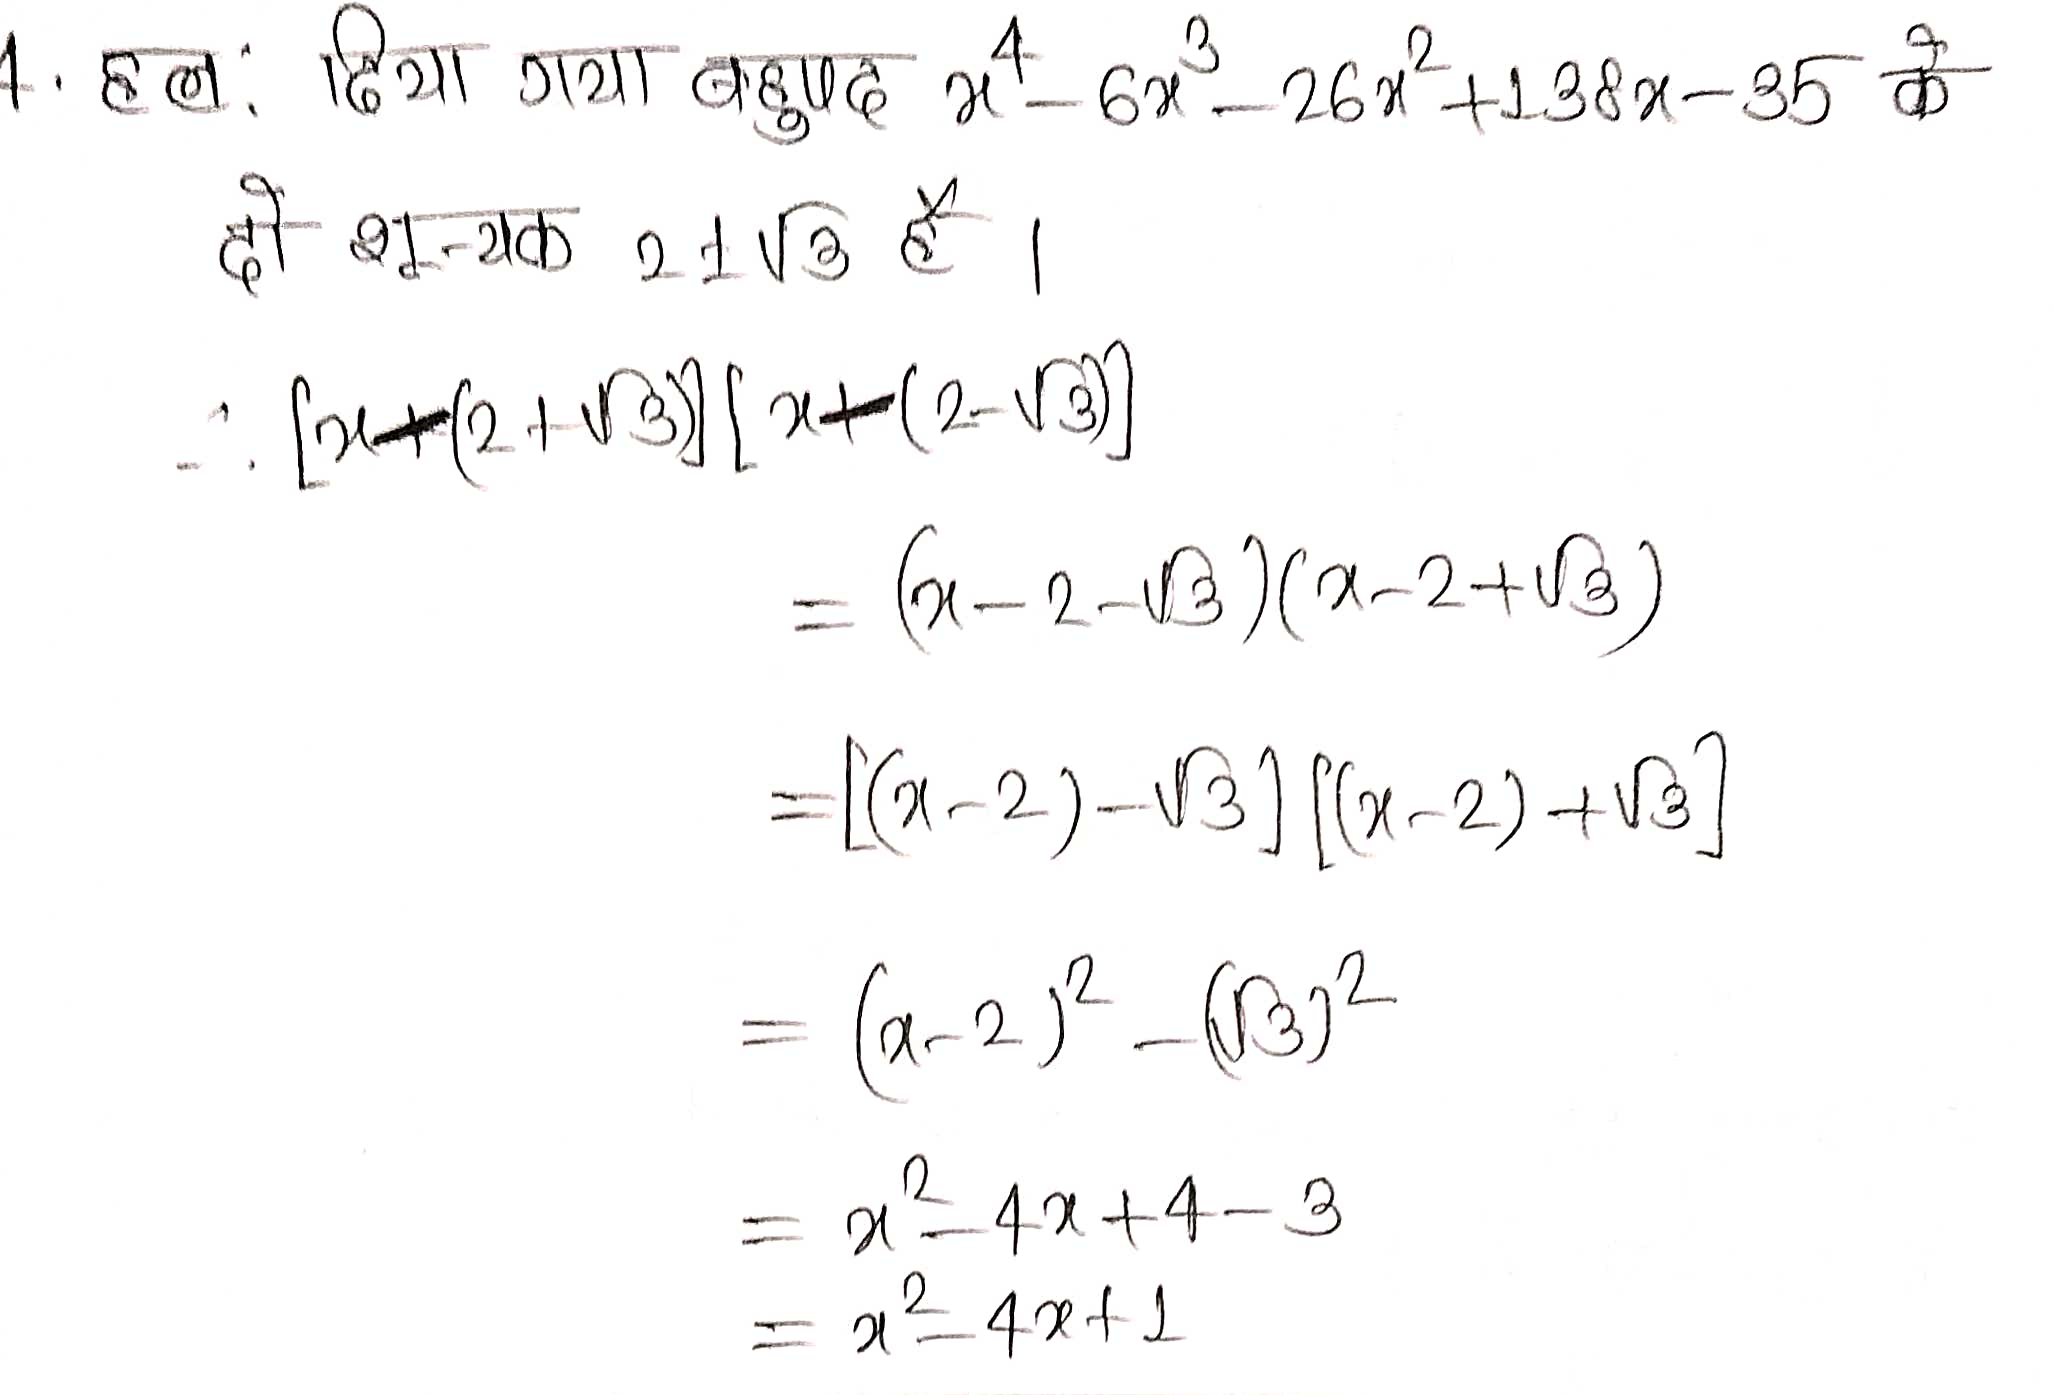 1. हल: दिया गया बहुपद x⁴ – 6x³ – 26x² + 138x – 35 के
दो शून्यक 2 ± √3 हैं।
∴ [x-(2+√3)] [x-(2-√3)]
= (x – 2 – √3)(x – 2 + √3)
= [(x – 2) – √3] [(x – 2) + √3]
= (x – 2)² – (√3)²
= x² – 4x + 4 – 3
= x² – 4x + 1